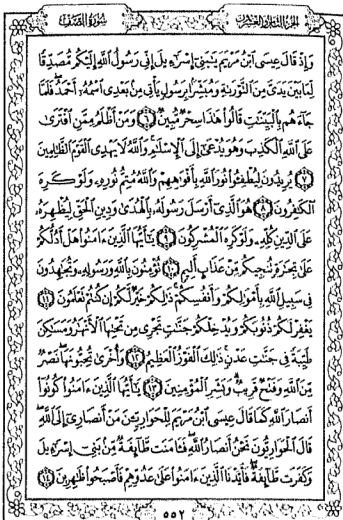 الجزء الثامن والعشرون سورة الصف
وَإِذْ قَالَ عِيسَى ٱبْنُ مَرْيَمَ يَٰبَنِىٓ إِسْرَٰٓءِيلَ إِنِّى رَسُولُ ٱللَّهِ إِلَيْكُم مُّصَدِّقًا
لِّمَا بَيْنَ يَدَىَّ مِنَ ٱلتَّوْرَىٰةِ وَمُبَشِّرًۢا بِرَسُولٍ يَأْتِى مِنۢ بَعْدِى ٱسْمُهُۥٓ أَحْمَدُ ۖ فَلَمَّا
جَآءَهُم بِٱلْبَيِّنَٰتِ قَالُوا۟ هَٰذَا سِحْرٌ مُّبِينٌ ٦ وَمَنْ أَظْلَمُ مِمَّنِ ٱفْتَرَىٰ
عَلَى ٱللَّهِ ٱلْكَذِبَ وَهُوَ يُدْعَىٰٓ إِلَى ٱلْإِسْلَٰمِ ۚ وَٱللَّهُ لَا يَهْدِى ٱلْقَوْمَ ٱلظَّٰلِمِينَ
٧ يُرِيدُونَ لِيُطْفِـُٔوا۟ نُورَ ٱللَّهِ بِأَفْوَٰهِهِمْ وَٱللَّهُ مُتِمُّ نُورِهِۦ وَلَوْ كَرِهَ
ٱلْكَٰفِرُونَ ٨ هُوَ ٱلَّذِىٓ أَرْسَلَ رَسُولَهُۥ بِٱلْهُدَىٰ وَدِينِ ٱلْحَقِّ لِيُظْهِرَهُۥ
عَلَى ٱلدِّينِ كُلِّهِۦ وَلَوْ كَرِهَ ٱلْمُشْرِكُونَ ٩ يَٰٓأَيُّهَا ٱلَّذِينَ ءَامَنُوا۟ هَلْ أَدُلُّكُمْ
عَلَىٰ تِجَٰرَةٍ تُنجِيكُم مِّنْ عَذَابٍ أَلِيمٍ ١٠ تُؤْمِنُونَ بِٱللَّهِ وَرَسُولِهِۦ وَتُجَٰهِدُونَ
فِى سَبِيلِ ٱللَّهِ بِأَمْوَٰلِكُمْ وَأَنفُسِكُمْ ۚ ذَٰلِكُمْ خَيْرٌ لَّكُمْ إِن كُنتُمْ تَعْلَمُونَ ١١
يَغْفِرْ لَكُمْ ذُنُوبَكُمْ وَيُدْخِلْكُمْ جَنَّٰتٍ تَجْرِى مِن تَحْتِهَا ٱلْأَنْهَٰرُ وَمَسَٰكِنَ
طَيِّبَةً فِى جَنَّٰتِ عَدْنٍ ۚ ذَٰلِكَ ٱلْفَوْزُ ٱلْعَظِيمُ ١٢ وَأُخْرَىٰ تُحِبُّونَهَا ۖ نَصْرٌ
مِّنَ ٱللَّهِ وَفَتْحٌ قَرِيبٌ ۗ وَبَشِّرِ ٱلْمُؤْمِنِينَ ١٣ يَٰٓأَيُّهَا ٱلَّذِينَ ءَامَنُوا۟ كُونُوٓا۟
أَنصَارَ ٱللَّهِ كَمَا قَالَ عِيسَى ٱبْنُ مَرْيَمَ لِلْحَوَارِيِّـۧنَ مَنْ أَنصَارِىٓ إِلَى ٱللَّهِ ۖ
قَالَ ٱلْحَوَارِيُّونَ نَحْنُ أَنصَارُ ٱللَّهِ ۖ فَـَٔامَنَت طَّآئِفَةٌ مِّنۢ بَنِىٓ إِسْرَٰٓءِيلَ
وَكَفَرَت طَّآئِفَةٌ ۖ فَأَيَّدْنَا ٱلَّذِينَ ءَامَنُوا۟ عَلَىٰ عَدُوِّهِمْ فَأَصْبَحُوا۟ ظَٰهِرِينَ ١٤
٥٥٢